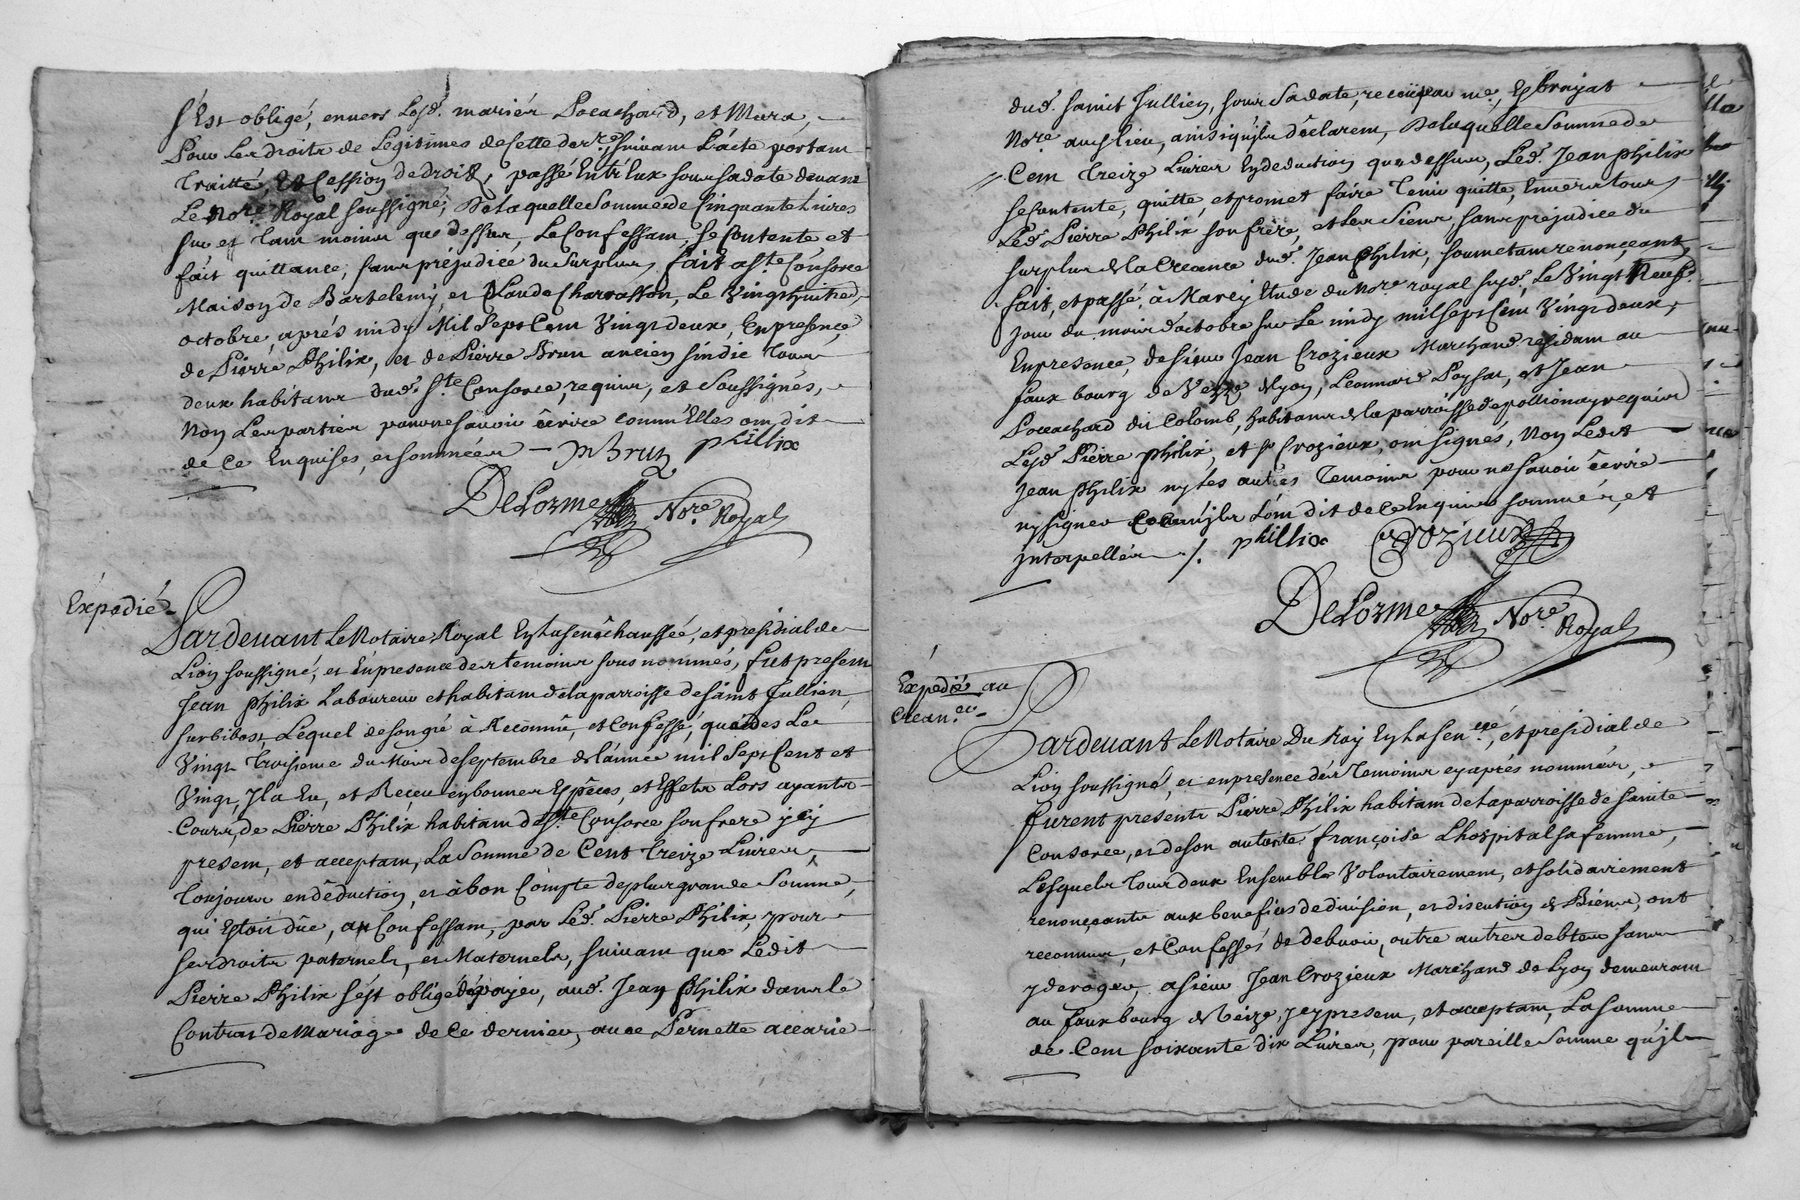 s'Est obligé, envers Lesd. mariés Poccachard, et Mura,
Pour Les droits de Legitimes de Cette derre, suivant L'acte portant
traitté, Et Cession de droits, passé Entr'Eux sous sa date devant
Le Nore Royal soussigné; De Laquelle Somme de Cinquante Livres
sur et tant moins que dessus, Le Confessant, se Contente et
fait quittance, sans préjudice du surplus, fait a Ste Consorce
Maison de Bartelemy et Claude Charrasson, Le Vingt huitie
octobre, aprés midy Mil Sept Cent Vingt deux, En presence
de Pierre Philix, et de Pierre Brun ancien sindic tous
deux habitans dud. Ste Consorce, requis, et Soussignés,
Non Les parties pour ne savoir écrire comm'Elles ont dit
de Ce Enquises, et sommées - P Brun phillix
DeLorme Nore Royal
Expedié
Pardevant Le Notaire Royal En La senéchaussée, et presidial de
Lion soussigné, et En presence des temoins sous nommés, fut present
Jean Philix Laboureur et habitant de la parroisse de saint Jullien
sur bibost, Lequel de son gré à Reconnu, et Confessé, que dés Le
Vingt troisieme du mois de septembre de l'année mil Sept Cent et
Vingt, Il a Eu, et Receu en bonnes Espéces, et Effets Lors ayants
Cours, de Pierre Philix habitant de Ste Consorce son frere icy
present, et acceptant, La Somme de Cent treize Livres,
toujours en déduction, et à bon Compte de plus grande Somme,
qui Estoit düe, au Confessant, par Led. Pierre Philix, pour
ses droits paternels, et Maternels, suivant que Ledit
Pierre Philix s'ést obligé de payer, aud. Jean Philix dans le
Contrat de Mariage de Ce dernier, avec Pernette accarie
dud. saint Jullien, sous sa date, receu par me, Esbrayat
Nore aud. lieu, ainsi qu'ils déclarent, De laquelle Somme de
Cent treize Livres En deduction que dessus, Led. Jean Philix
se Contente, quitte, et promet faire tenir quitte, Envers tous
Led. Pierre Philix son frére, et Les Siens, sans préjudice du
surplus de la Creance dud. Jean Philix, soumettant renonçeant,
fait, et passé, à Marcy Etude du Nore royal susd. Le Vingt Neufe.
jour du mois d'octobre sur Le midy mil sept Cent Vingt deux,
En presence, de sieur Jean Crozieux Marchand residant au
faux bourg de Veze de Lyon, Leonnard Poyfat, et Jean
Poccachard du Colomb, habitans de la parroisse de pollionay requis
Lesd. Pierre philix, et sr Crozieux, ont signés, Non Ledit
Jean Philix ny Les autres temoins pour ne Savoir écrire
ny signer Comm'ils L'ont dit de Ce Enquis sommés, et
interpellés ./. phillix Crozieux
DeLorme Nore Royal
Expedié au
Crean.er
Pardevant Le Notaire Du Roy En La Sen.ée, et presidial de
Lion soussigné, et en presence des temoins cy aprés nommés,
furent presents Pierre Philix habitant de la parroisse de sainte
Consorce, et de son autorité françoise Lhospital sa femme,
Lesquels tous deux Ensemble Volontairement, et solidairement
renonçants aux benefices de division, et discution de Biens, ont
reconnus, et Confessés de debvoir, outre autres debtes sans
y deroger, a sieur Jean Crozieux Marchand de Lyon demeurant
au faux bourg de Veize, icy present, et acceptant, La somme
de Cent soixante dix Livres, pour pareille Somme qu'ils